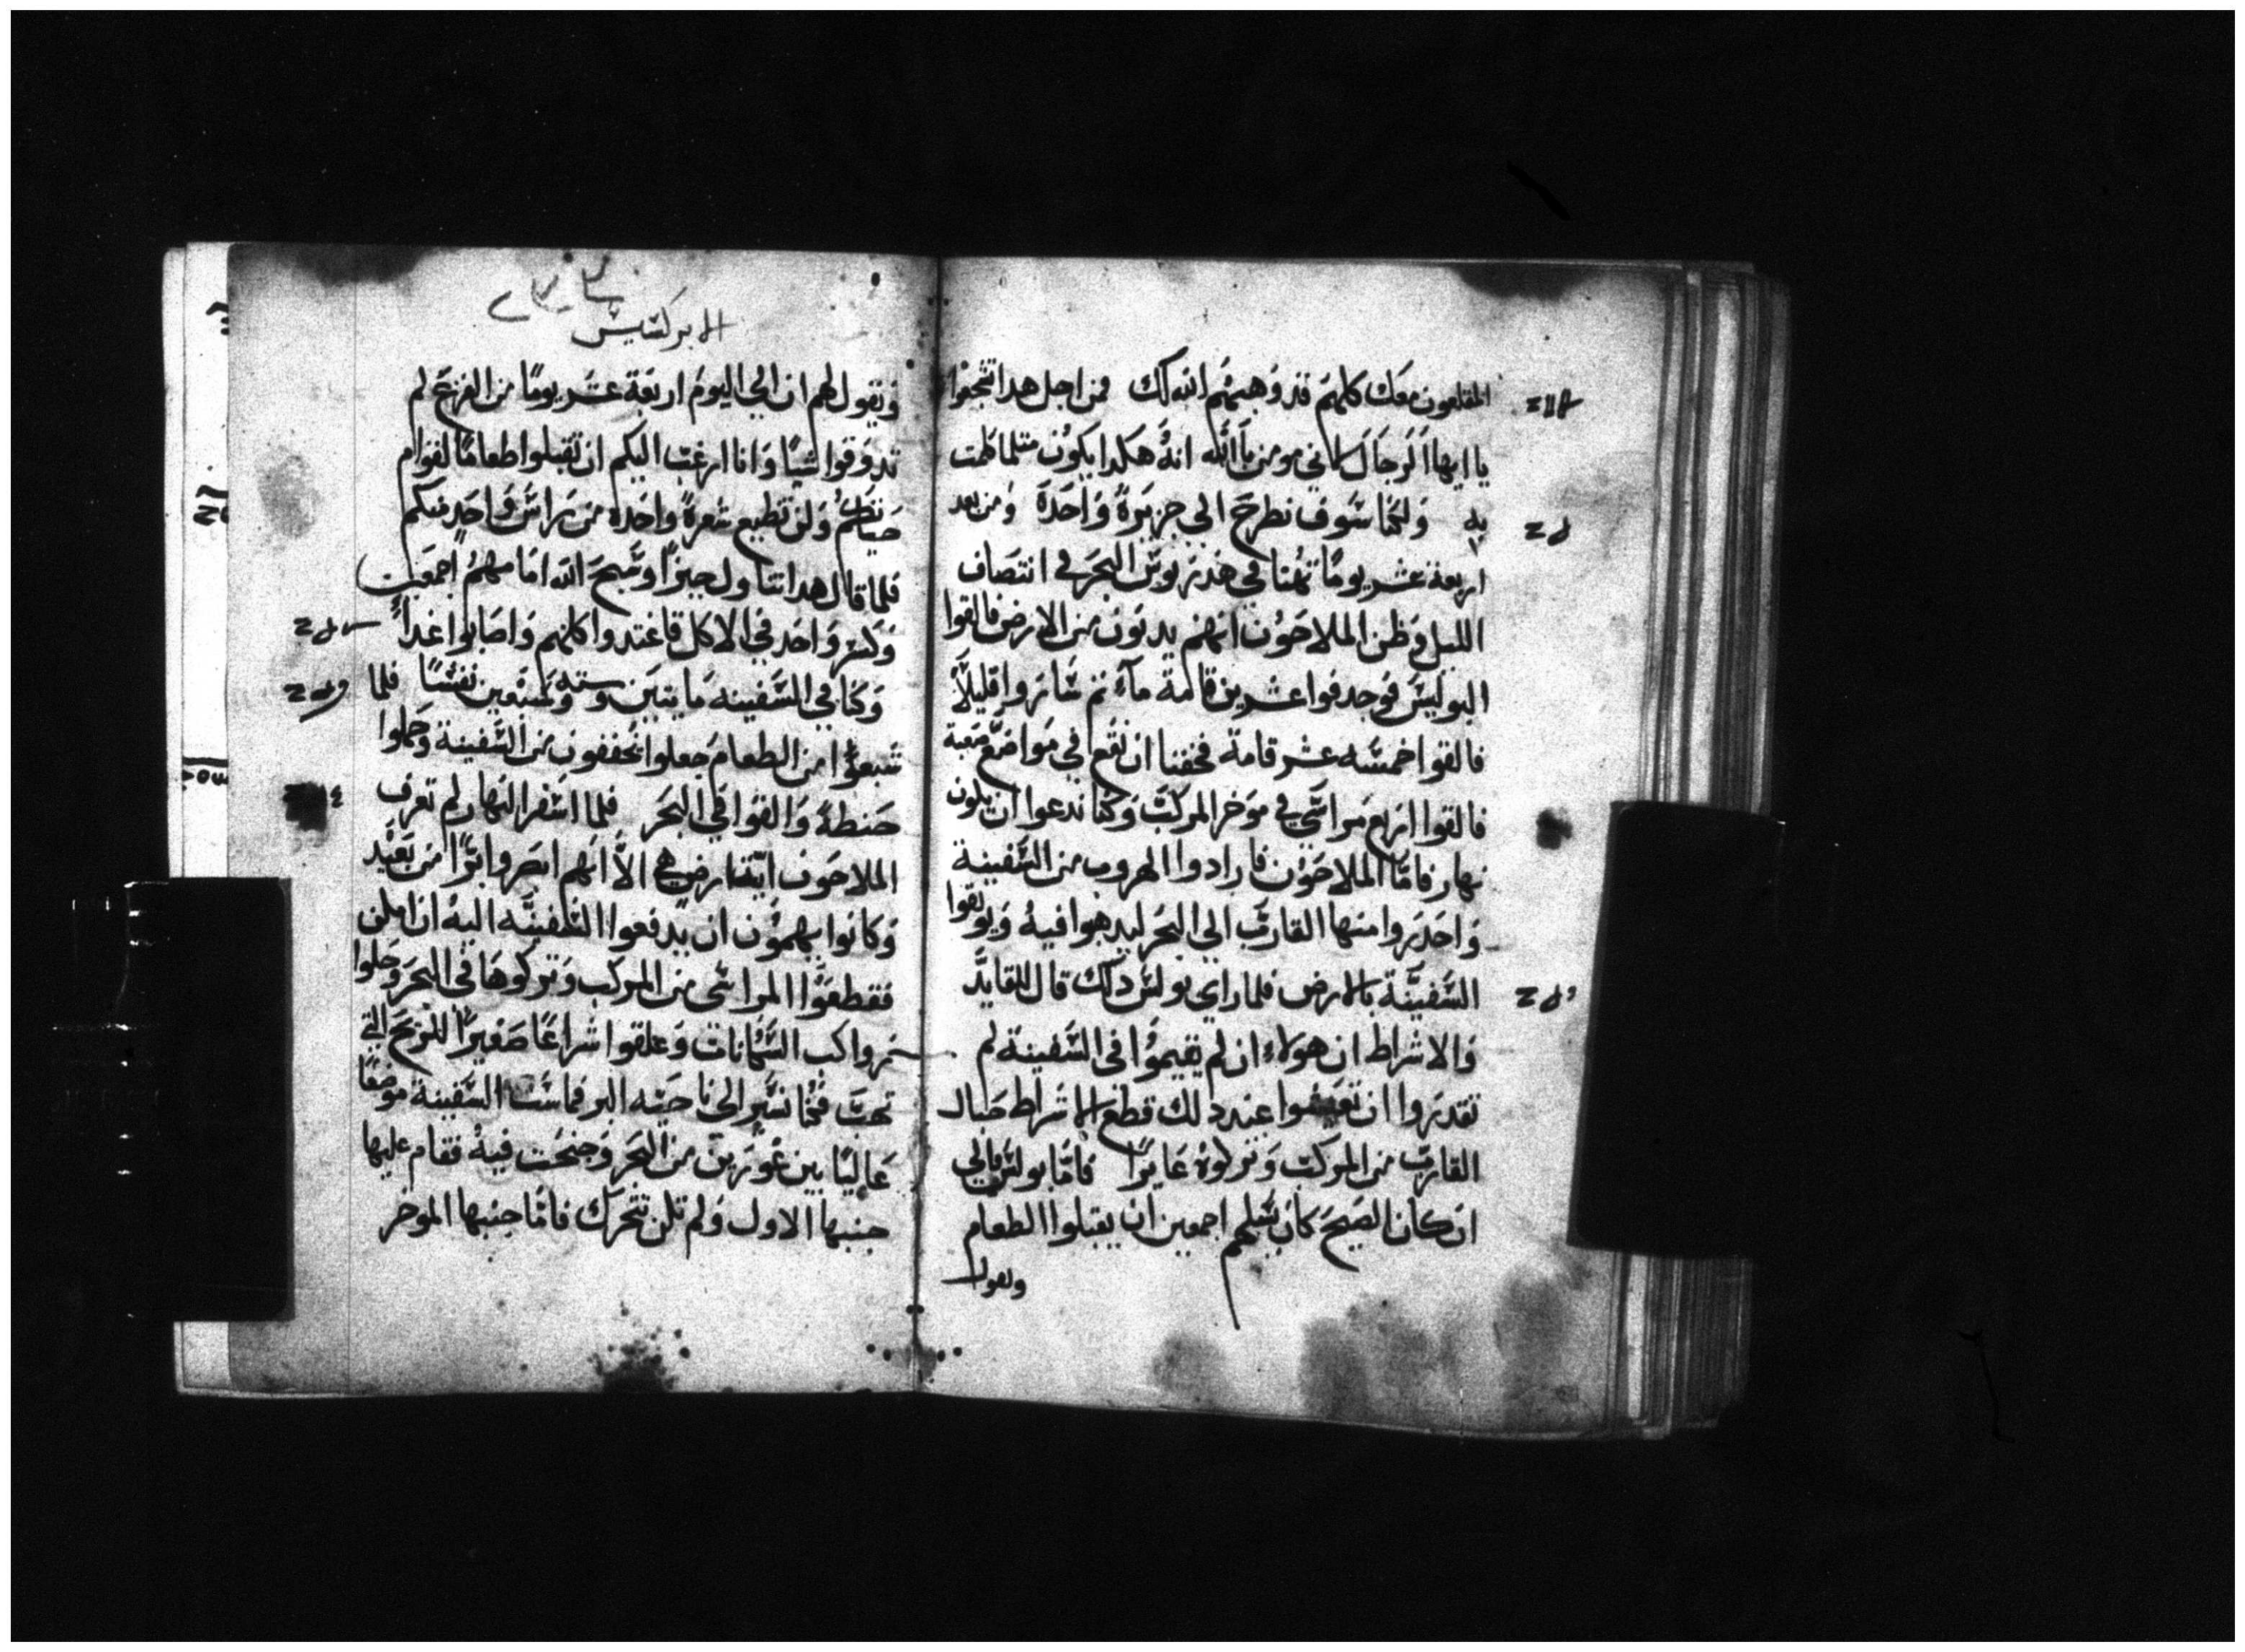 المقلعون معك كلهم قد وَهبهُم الله لك فمن اجل هدا اتنجعوا
يا ايها الرجَال لاني مومن بالله انهُ هكدا يكوُن متلما كلمت
به وَلكنا سَوف نطرحَ الي جزيرَةً وَاحَدَة ومن بعد
اربعة عشر يومًا تهُنا في هدريوسَ البحرَ في انتصَاف
الليل وَظن الملاحَوُن انهم يدنوَن من الارض فالقوا
البوليسَ فوَجدوا عشرين قامة مآء تم سَارَوا قليلاً
فالقوا خمسَه عشر قامة فخفنا ان نقع في موَاضع صَعبة
فالقوا اربع مرَاسَي في موَخر المركبَ وَكنا ندعوا ان يكون
نهار فامَّا الملاحَوُن فارادوا الهروب من السَفينة
وَاحَدَرَوا منها القاربَ الي البحَر ليدهبوا فيهُ وَيوَتقوا
السَفينَة بالارض فلما راي بولسَ دلك قال للقايدَ
وَالاشراط ان هولاءِ ان لم يقيموُا في السَفينة لم
تقدرَوا ان تعيشوا عند دلك قطع الاشراط حَبال
القاربَ من المركبَ وَتركوهُ عَايرًا فامَّا بولسَ فالي
ان كان الصَبحَ كان يسَلهم اجمعين ان يقبلوا الطعام
ويقول
الابركسَيسَ
وَيقول لهم ان الي اليومَ اربَعة عشَر يومًا من الفزعَ لم
تدوَقوا شيًا وَانا ارغبَ اليكم ان تقبلوا طعامًا لقوام
حَياتكم وَلن تضيع شعرةً واحَدةً من رَاسَ وَاحَدٍ منكم
فلما قال هدا تناول خبزًا وسَبحَ الله امَامهمُ اجمعَين
وَكسَر وَاخد في الاكل فاغتدوا كلهم وَاصَابوا غداً
وَكنا في السَفينه مَايتين وسته وَسَبعين نفسًا فلما
شبعوُا من الطعامَ جعلوا يخففون من السَفينة وَحملوا
حَنطةً وَالقوَا في البحَر فلما اسَفر النهار لم تعرف
الملاحَون ايّة ارض هي الاَّ انهم ابصَروا برًّا من بعَيد
وَكانوا يهموُن ان يدفعوا السَفينَه اليهُ ان امكن
فقطعَوُا المراسَي من المركب وَتركوهَا في البحَر وَحلوا
رَواكب السَكانات وَعلقوا شراعًا صَغيرًا للريحَ التي
تحتَ فكنا نسَير الي ناحَيَه البر فماسَت السَفينة موضعًا
عَاليًا بين غوَرين من البحَر وَجنحَت فيهُ فقام عليها
جنبها الاول وَلم تكن تتحَرك فامَّا جنبها الموخر